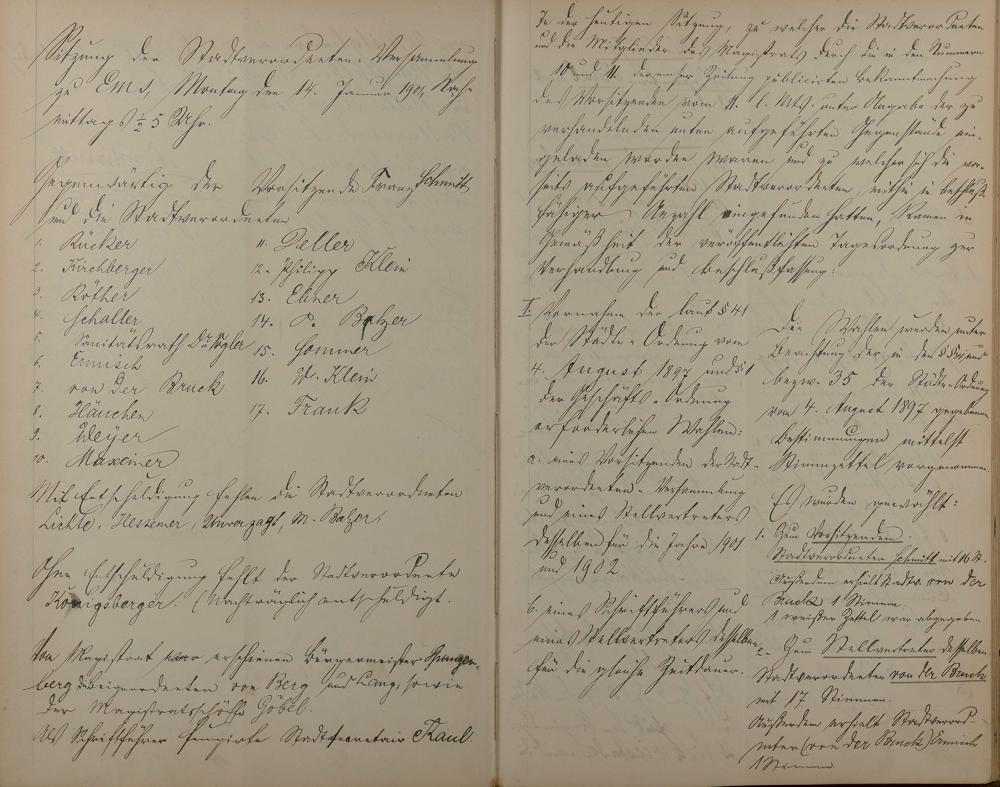 Sitzung der Stadtverordneten-Versammlung
zu Ems, Montag den 14. Januar 1901, Nach-
mittags ½ 5 Uhr.
Gegenwärtig der Vorsitzende Franz Schmitt
und die Stadtverordneten
1. Rücker
2. Kirchberger
3. Röther
4. Schaller
5. Sanitätsrath Dr. Vogler
6. Ermisch
7. von der Bruck
8. Häuchen
9. Weyer
10. Maxeiner
11. Deller
12. Philipp Klein
13. Ebner
14. P. Balzer
15. Sommer
16. W. Klein
17. Frank
Mit Entschuldigung fehlen die Stadtverordneten
Lichte, Hessemer, Unverzagt, M. Balzer.
Ohne Entschuldigung fehlt der Stadtverordnete
Königsberger. (Nachträglich entschuldigt.
Vom Magistrat erschienen Bürgermeister Spangen-
berg, die Beigeordneten von Berg und Lang, sowie
der Magistratsschöffe Göbel.
Als Schriftführer fungirte Stadtsecretair Kaul.
In der heutigen Sitzung, zu welcher die Stadtverordneten
und die Mitglieder des Magistrats durch die in den Nummern
10 und 11 der Emser Zeitung publicirten Bekanntmachung
des Vorsitzenden vom 11. l. Mts. unter Angabe der zu
verhandelnden unten aufgeführten Gegenstände ein-
geladen worden waren und zu welcher sich die vor-
seits aufgeführten Stadtverordneten, mithin in beschluß-
fähiger Anzahl eingefunden hatten, kamen in
Gemäßheit der veröffentlichten Tagesordnung zur
Verhandlung und Beschlußfassung:
I. Vornahme der laut § 41
der Städte-Ordnung vom
4. August 1897 und § 1
der Geschäfts-Ordnung
erforderlichen Wahlen:
a. eines Vorsitzenden der Stadt-
verordneten-Versammlung
und eines Stellvertreters
desselben für die Jahre 1901
und 1902.
b. eines Schriftführers und
eines Stellvertreters desselben
für die gleiche Zeitdauer.
Die Wahlen werden unter
Beachtung der in den §§ 41 und
bezw. 35 der Städte-Ordnung
vom 4. August 1897 gegebenen
Bestimmungen mittelst
Stimmzettel vorgenommen.
Es wurden gewählt:
1. Zum Vorsitzenden:
Stadtverordneter Schmitt mit 16 St.
Außerdem erhielt Stadtv. von der
Bruck 1 Stimme.
1 weißer Zettel war abgegeben
2. Zum Stellvertreter desselben
Stadtverordneter von der Bruck
mit 17 Stimmen.
Außerdem erhielt Stadtverord-
neter (von der Bruck) Ermisch
1 Stimme